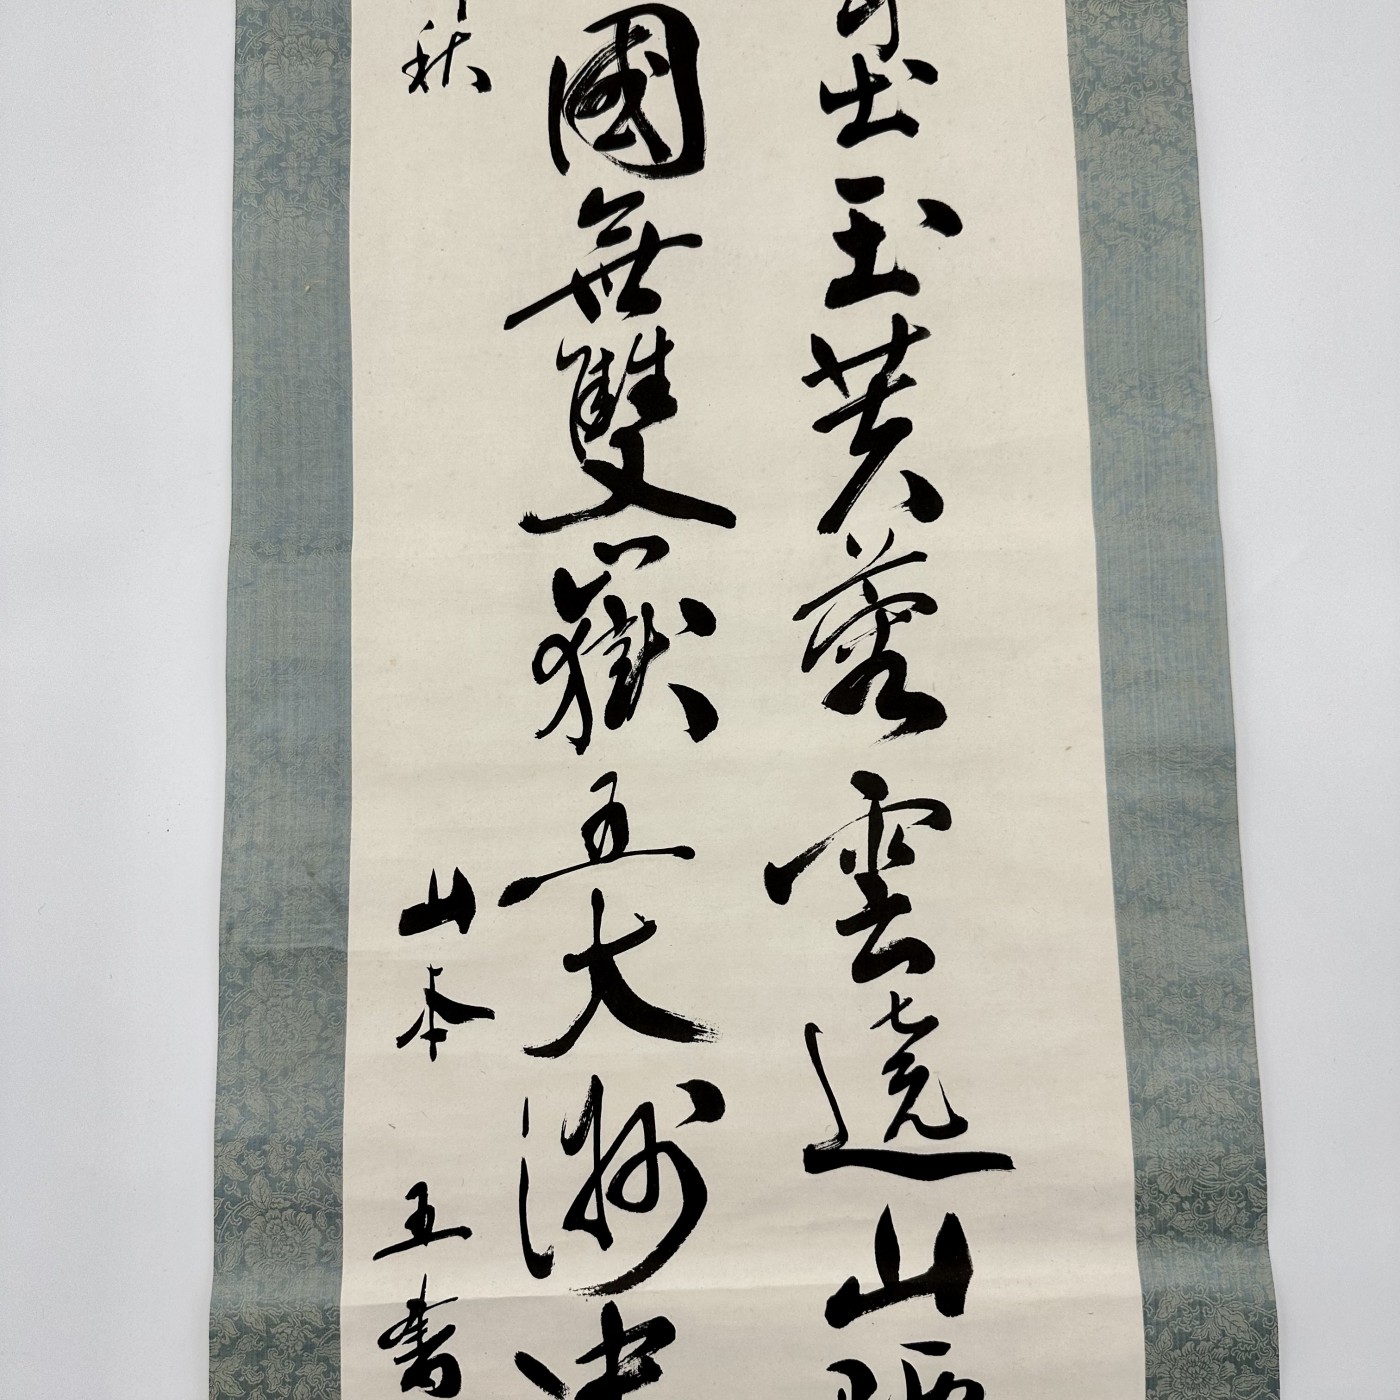 出玉芙蓉雲遶山腰
國無雙嶽五大洲中
秋 山本五書